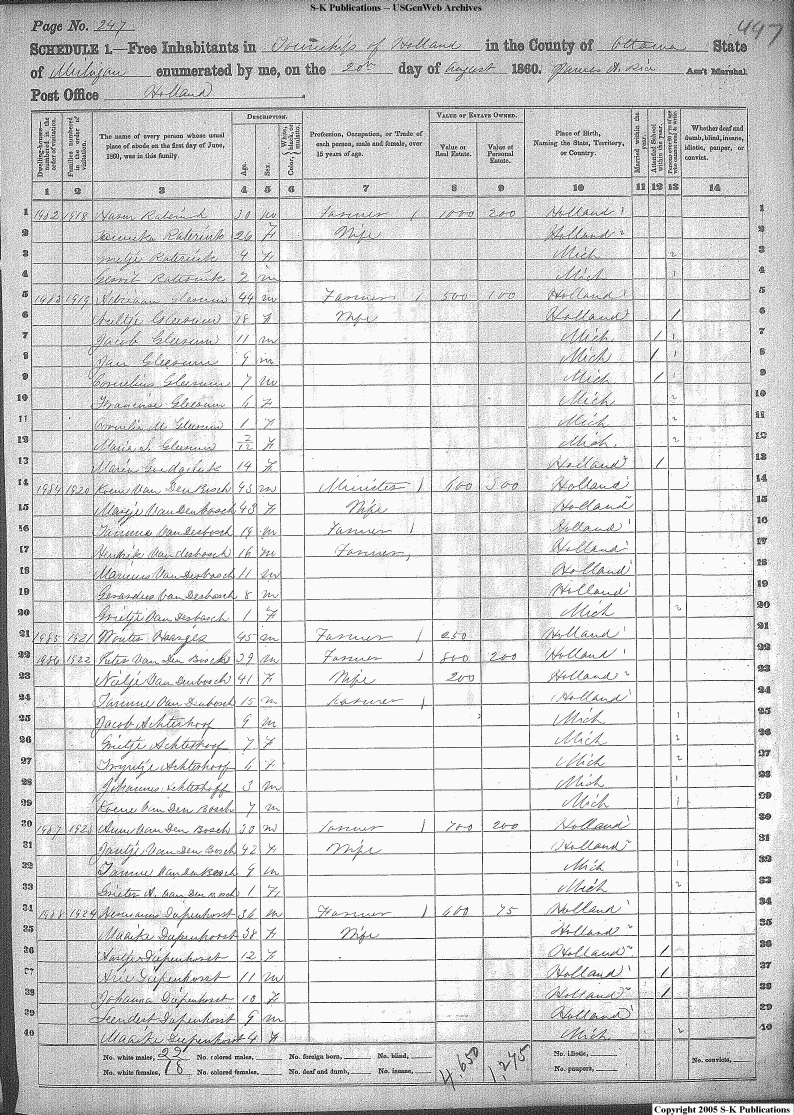 S-K Publications – USGenWeb Archives
Page No. 247
497
SCHEDULE 1.—Free Inhabitants in Township of Holland in the County of Ottawa State
of Michigan enumerated by me, on the 20th day of August 1860. Ass't Marshal
Post Office Holland
Dwelling-houses— numbered in the order of visitation.
Families numbered in the order of visitation.
The name of every person whose usual place of abode on the first day of June, 1860, was in this family.
DESCRIPTION.
Age.
Sex.
Color, White, black, or mulatto.
Profession, Occupation, or Trade of each person, male and female, over 15 years of age.
VALUE OF ESTATE OWNED.
Value of Real Estate.
Value of Personal Estate.
Place of Birth, Naming the State, Territory, or Country.
Married within the year.
Attended School within the year.
Persons over 20 y'rs of age who cannot read & write.
Whether deaf and dumb, blind, insane, idiotic, pauper, or convict.
1 2 3 4 5 6 7 8 9 10 11 12 13 14
1 1982 1918 Raterink 30 m Farmer 1 1000 200 Holland 1 1
2 Raterink 26 f Wife Holland 2 2
3 Raterink 4 f Mich 2 3
4 Gerrit Raterink 2 m Mich 1 4
5 1983 1919 Gleesum 44 m Farmer 1 500 100 Holland 1 5
6 Neeltje Gleesum 38 f Wife Holland 1 6
7 Jacob Gleesum 11 m Mich 1 1 7
8 Jan Gleesum 9 m Mich 1 1 8
9 Cornelius Gleesum 7 m Mich 1 1 9
10 Gleesum 6 f Mich 2 10
11 M Gleesum 1 f Mich 2 11
12 Maria J. Gleesum 2/12 f Mich. 2 12
13 Maria 19 f Holland 2 1 13
14 1984 1920 Koene Van Den Bosch 43 m Minister 1 600 300 Holland 14
15 Van Den Bosch 43 f Wife Holland 2 15
16 Tamme Van Desbosch 19 m Farmer 1 Holland 1 16
17 Hendrik Van Desbosch 16 m Farmer Holland 1 17
18 Marinus Van Desbosch 11 m Holland 1 18
19 Gerardus Van Desbosch 8 m Holland 19
20 Grietje Van Desbosch 1 f Mich 2 20
21 1985 1921 Wouter 45 m Farmer 1 250 Holland 1 21
22 1986 1922 Peter Van Den Bosch 39 m Farmer 1 800 200 Holland 1 22
23 Neeltje Van Denbosch 41 f Wife 200 Holland 2 23
24 Tamme Van Denbosch 15 m Farmer 1 Holland 1 24
25 Jacob Achterhoof 9 m Mich 1 25
26 Grietje Achterhoof 7 f Mich 2 26
27 Achterhoof 6 f Mich 2 27
28 Johannus Achterhoff 3 m Mich 1 28
29 Koene Van Den Bosch 7 m Mich 1 29
30 1987 1923 Van Den Bosch 30 m Farmer 1 700 200 Holland 1 30
31 Jantje Van Den Bosch 42 f Wife Holland 2 31
32 Tamme Van den Bosch 9 m Mich 1 32
33 Van den Bosch 1 f Mich 2 33
34 1988 1924 Hermanus Diepenhorst 36 m Farmer 1 600 75 Holland 1 34
35 Maaike Diepenhorst 38 f Wife Holland 2 35
36 Diepenhorst 12 f Holland 2 1 36
37 Arie Diepenhorst 11 m Holland 1 1 37
38 Johanna Diepenhorst 10 f Holland 2 1 38
39 Leendert Diepenhorst 9 m Holland 1 39
40 Maaike Diepenhorst 4 f Mich 2 40
No. white males, 22 No. colored males, No. foreign born, No. blind, 4,650 1,275 No. idiotic, No. convicts,
No. white females, 18 No. colored females, No. deaf and dumb, No. insane, No. paupers,
Copyright 2005 S-K Publications